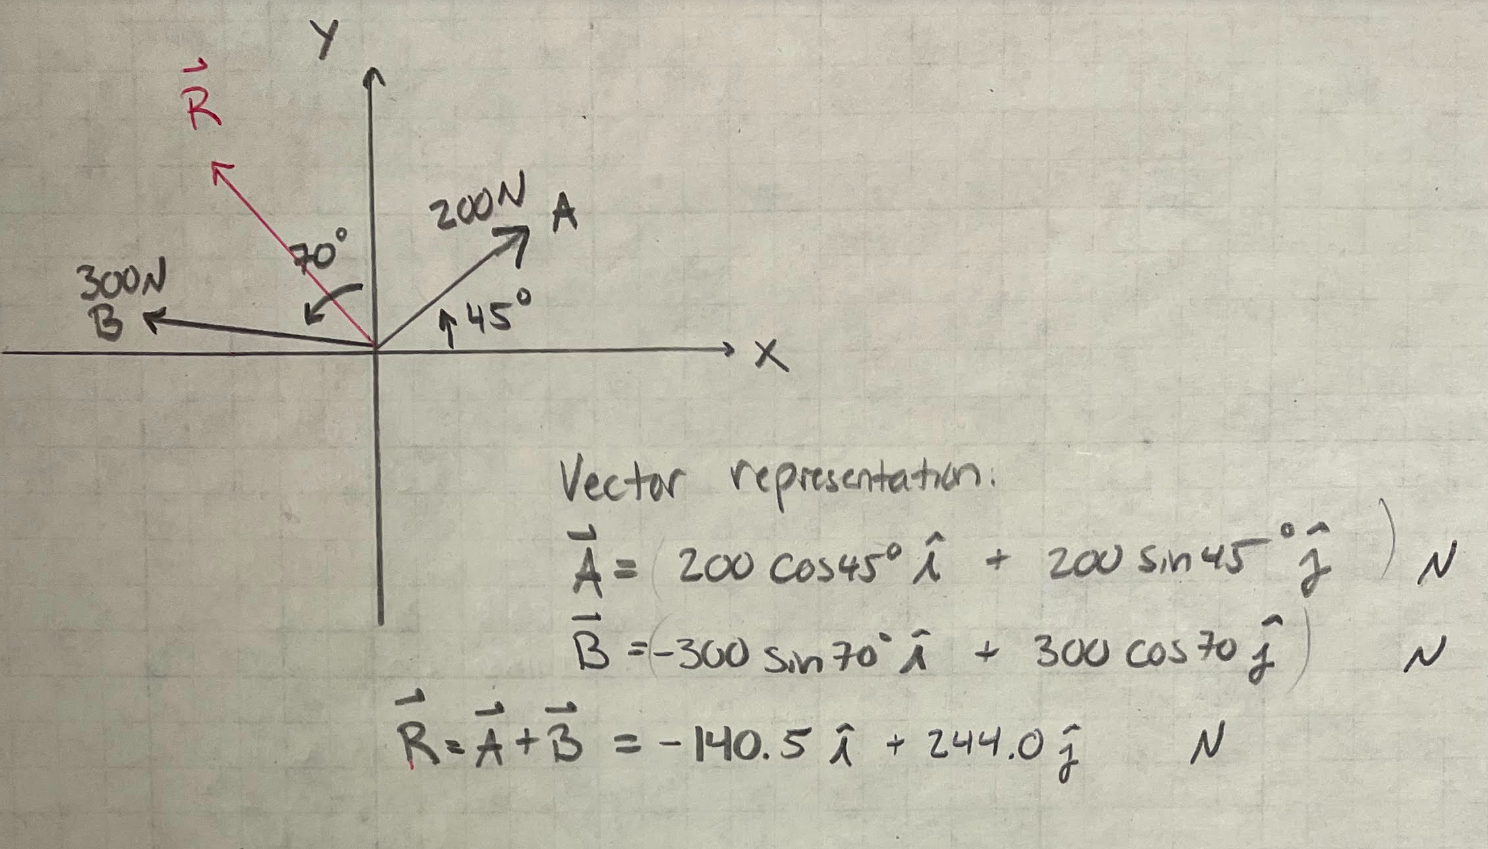 Y
R⃗
200N A
70°
300N
B
45°
X
Vector representation:
A⃗ = (200 cos45° î + 200 sin45° ĵ) N
B⃗ = (-300 sin70° î + 300 cos70 ĵ) N
R⃗ = A⃗ + B⃗ = -140.5 î + 244.0 ĵ N